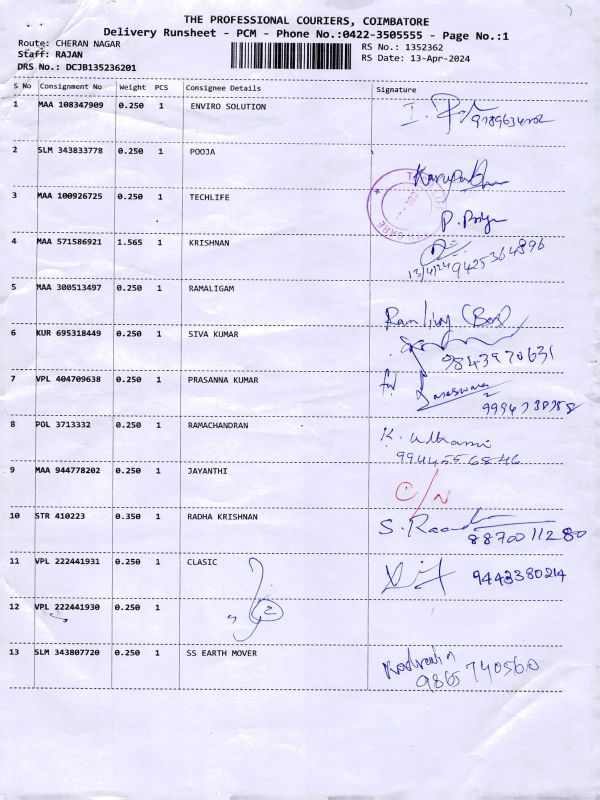 THE PROFESSIONAL COURIERS, COIMBATORE
Delivery Runsheet - PCM - Phone No.:0422-3505555 - Page No.:1
Route: CHERAN NAGAR
Staff: RAJAN
DRS No.: DCJB135236201
RS No.: 1352362
RS Date: 13-Apr-2024
S No Consignment No Weight PCS Consignee Details Signature
1 MAA 108347909 0.250 1 ENVIRO SOLUTION
2 SLM 343833778 0.250 1 POOJA
3 MAA 100926725 0.250 1 TECHLIFE
P. Priya
4 MAA 571586921 1.565 1 KRISHNAN
13/4/24 9425364896
5 MAA 300513497 0.250 1 RAMALIGAM
6 KUR 695318449 0.250 1 SIVA KUMAR
9843970631
7 VPL 404709638 0.250 1 PRASANNA KUMAR
for
8 POL 3713332 0.250 1 RAMACHANDRAN
9944556846
9 MAA 944778202 0.250 1 JAYANTHI
C/N
10 STR 410223 0.350 1 RADHA KRISHNAN
8870011280
11 VPL 222441931 0.250 1 CLASIC
9443380214
12 VPL 222441930 0.250 1
" 2
13 SLM 343807720 0.250 1 SS EARTH MOVER
9865 740560